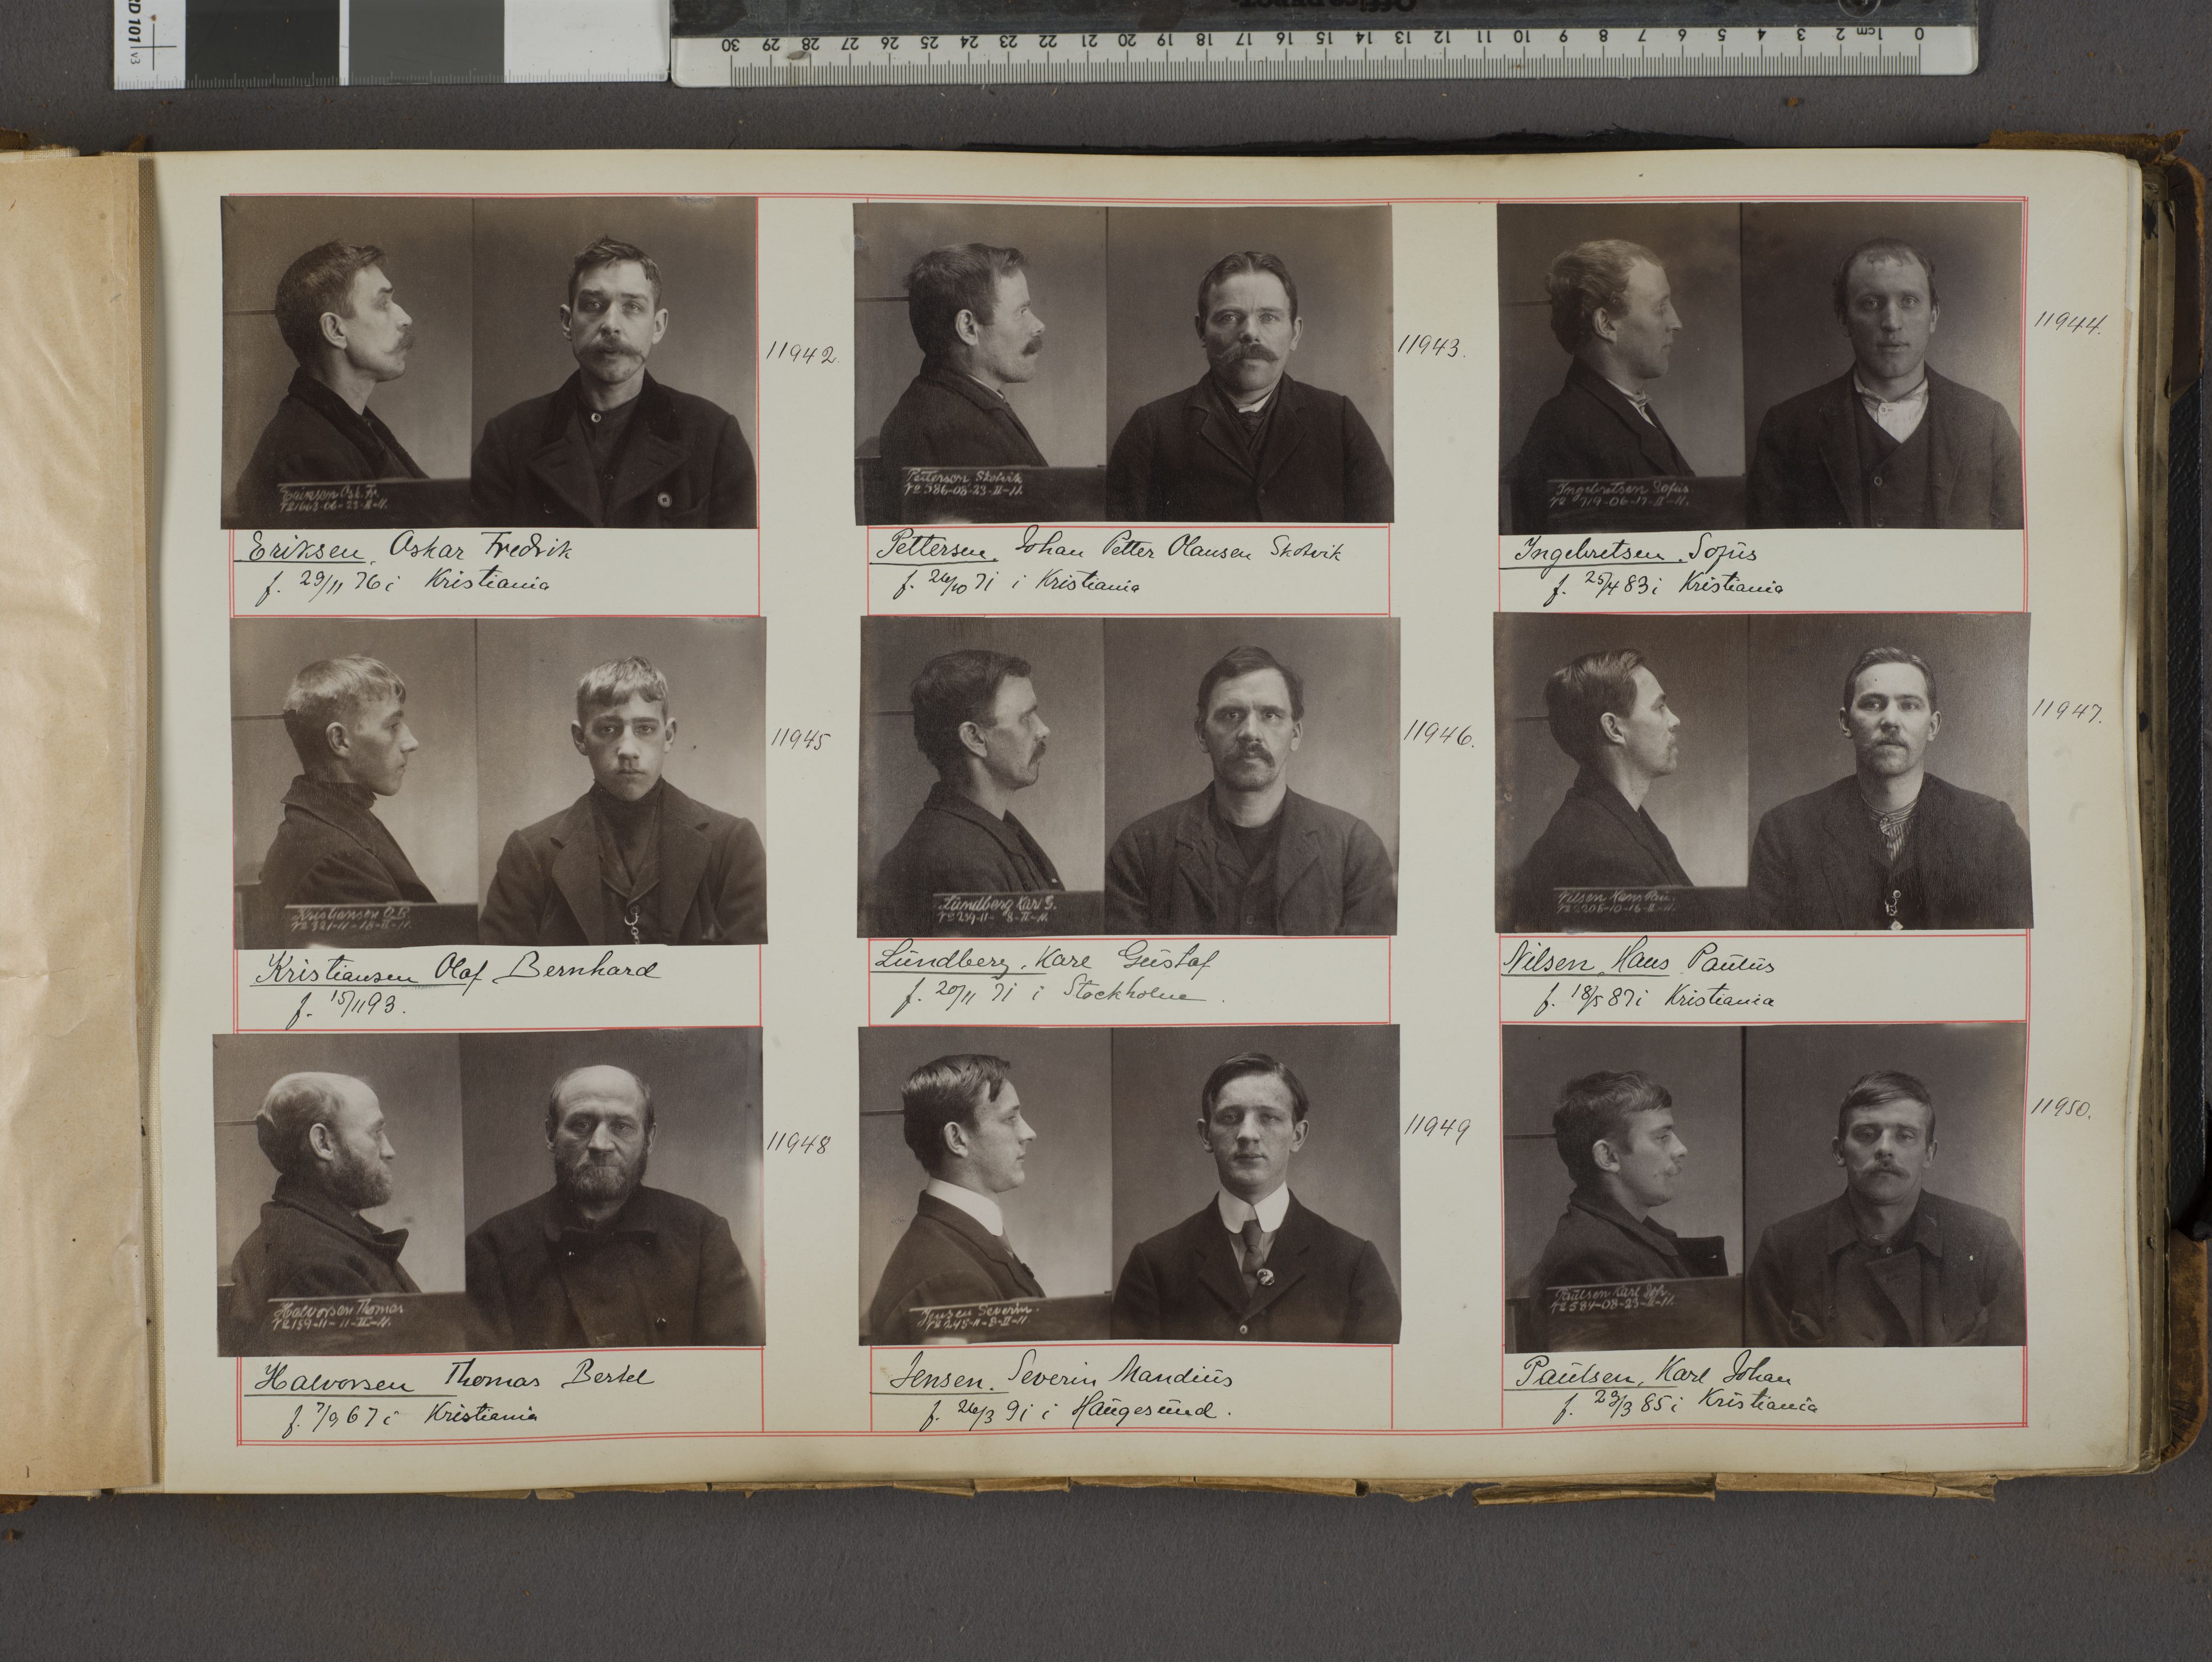 0 1cm 2 3 4 5 6 7 8 9 10 11 12 13 14 15 16 17 18 19 20 21 22 23 24 25 26 27 28 29 30
11942.
Eriksen, Oskar Fredrik
f. 29/11 76 i Kristiania
11943.
Pettersen Skotvik
Pettersen, Johan Petter Olausen Skotvik
f. 26/10 71 i Kristiania
11944.
Ingebretsen Sofus.
Ingebretsen, Sofus
f. 25/4 83 i Kristiania
11945
Kristiansen O.B.
№ 321-11-18-II-11.
Kristiansen Olaf Bernhard
f. 15/11 93.
11946.
Lundberg Karl G.
№ 239-11- 8-II-11.
Lundberg, Karl Gustaf
f. 20/11 71 i Stockholm.
11947.
Nilsen Hans Pau.
№ 2206-10-16-II-11.
Nilsen, Hans Paulus
f. 18/5 87 i Kristiania
11948
Halvorsen Thomas
№ 159-11-11-II-11.
Halvorsen Thomas Bertel
f. 7/9 67 i Kristiania
11949
Jensen Severin.
№ 245-11-8-II-11.
Jensen, Severin Mandius
f. 26/3 91 i Haugesund.
11950.
Paulsen Karl Joh.
№ 584-08-23-II-11.
Paulsen, Karl Johan
f. 23/3 85 i Kristiania